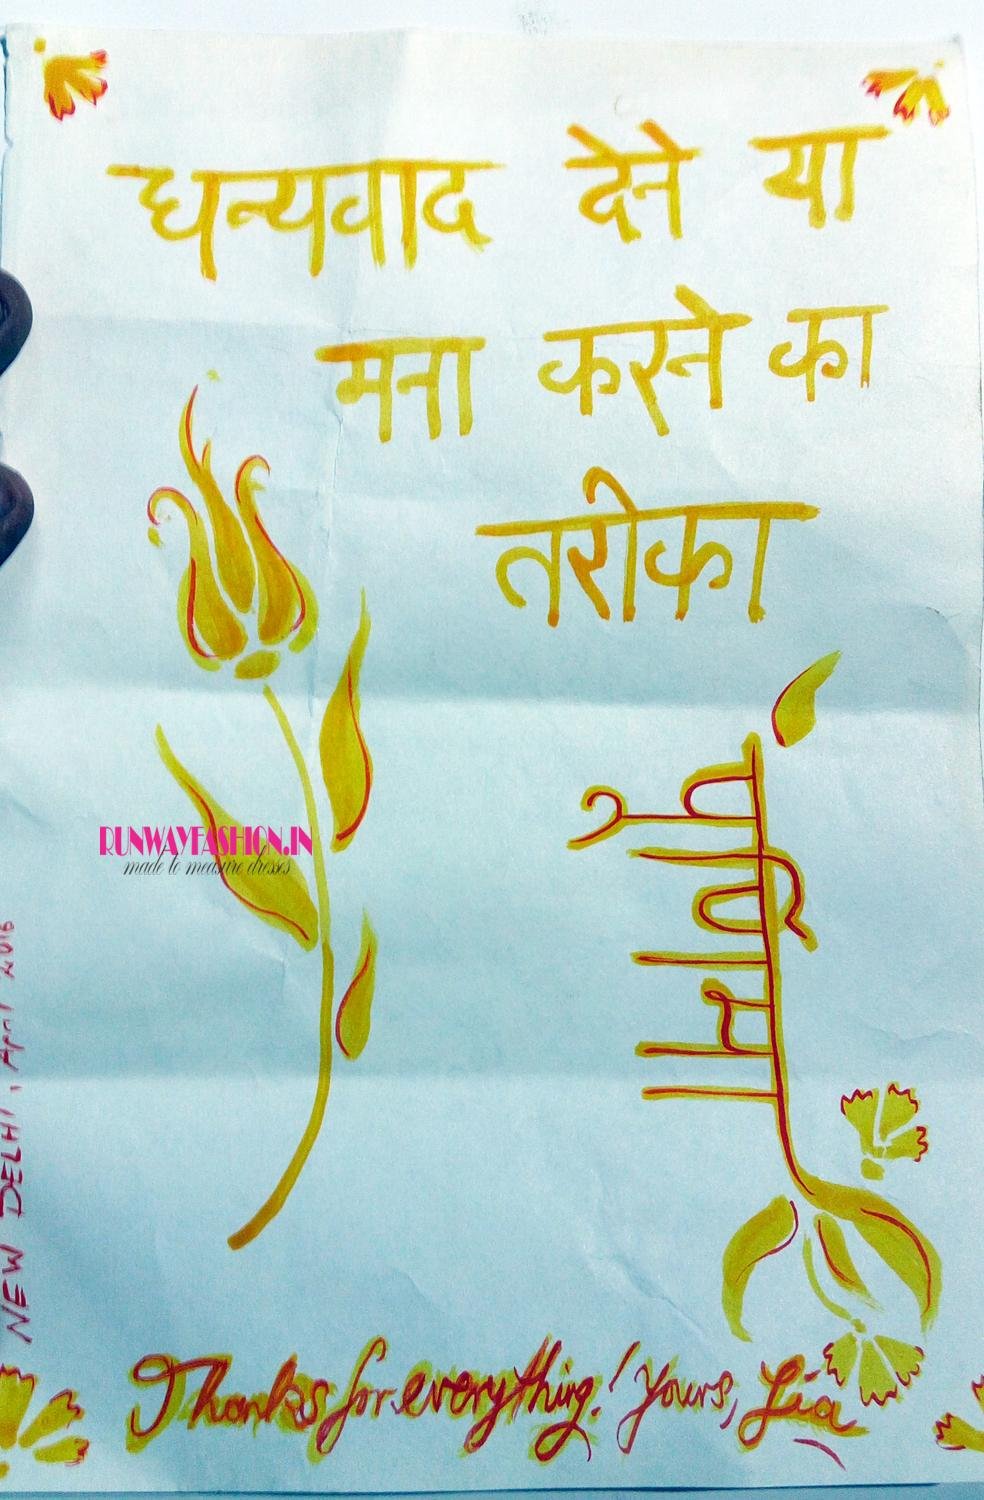 धन्यवाद देने या
मना करने का
तरीका
RUNWAYFASHION.IN
made to measure dresses
NEW DELHI, April 2016
Thanks for everything! Yours, Lia